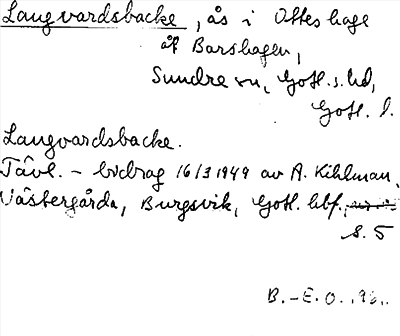 Langvardsbacke, ås i Otteshage
åt Barshagen,
Sundre sn, Gotl. s. hd,
Gotl. l.
Langvardsbacke.
Tävl. - bidrag 16/3 1949 av A. Kihlman,
Västergårda, Burgsvik, Gotl. hbf.,
s. 5
B. - E. O.